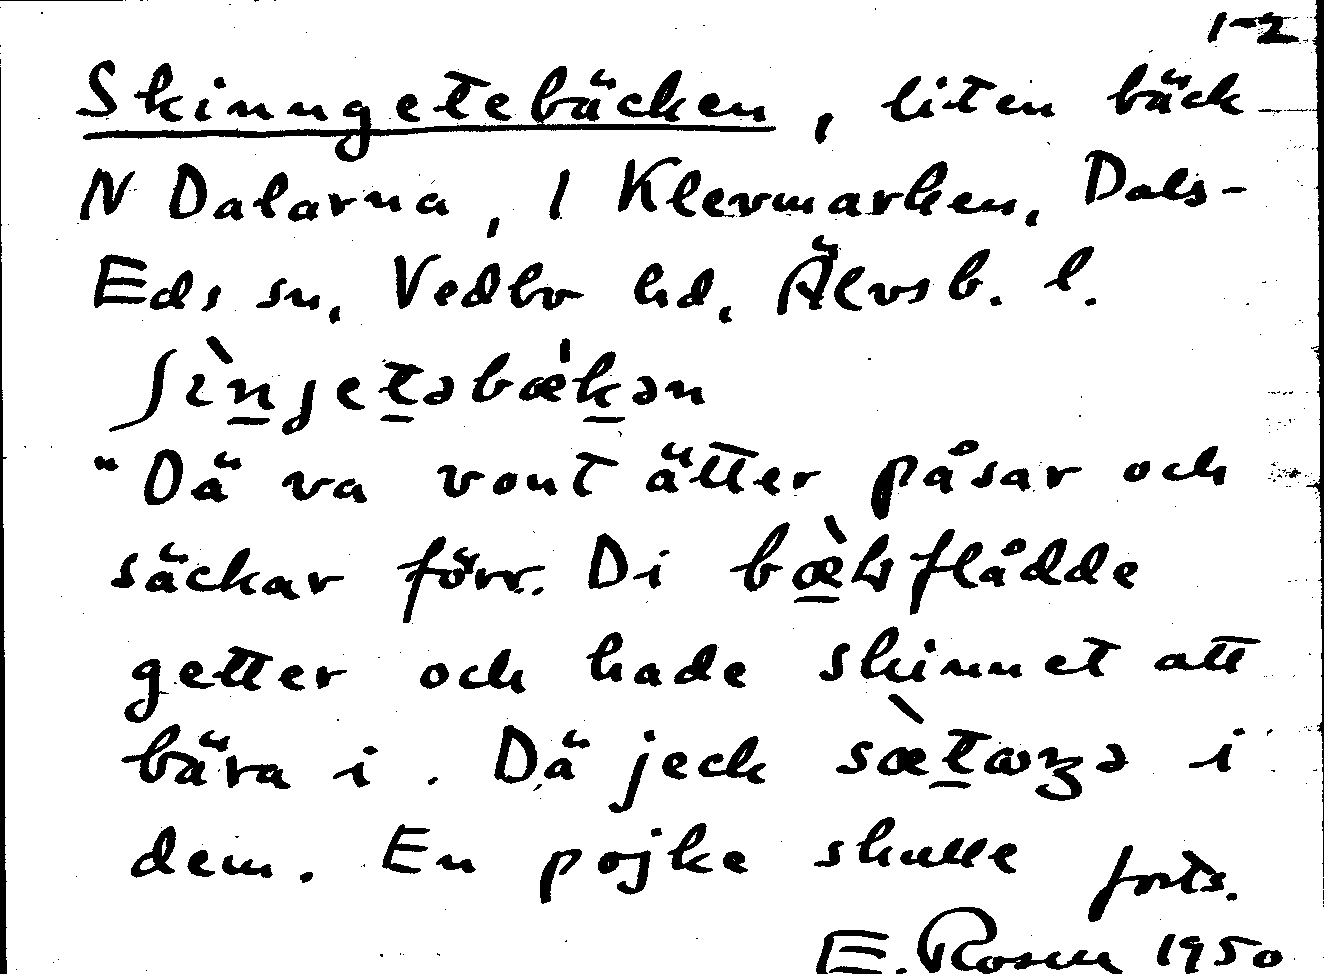 1-2
Skinngetebäcken, liten bäck
N Dalarna, i Klevmarken, Dals-
Eds sn, Vedbo hd, Älvsb. l.
"Dä va vont ätter påsar och
säckar förr. Di flådde
getter och hade skinnet att
bära i. Dä jeck i
dem. En pojke skulle forts.
E. Rosen 1950